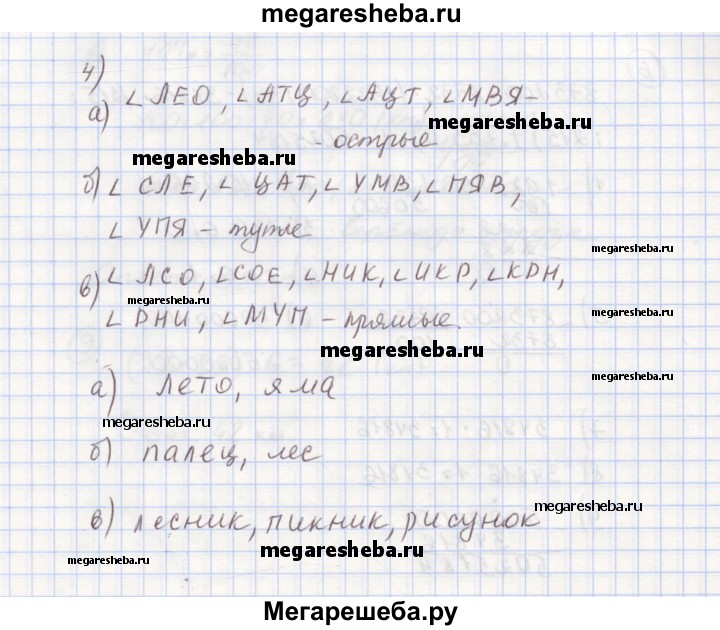 megaresheba.ru
4)
а) ∠ ЛЕО, ∠ АТЦ, ∠ АЦТ, ∠ МВЯ -
megaresheba.ru
- острые
megaresheba.ru
б) ∠ СЛЕ, ∠ ЦАТ, ∠ УМВ, ∠ПЯВ,
∠ УПЯ - тупые
megaresheba.ru
в) ∠ ЛСО, ∠СОЕ, ∠НИК, ∠ИКР, ∠КРН,
megaresheba.ru
∠ РНИ, ∠ МУП - прямые.
megaresheba.ru
а) лето, яма
megaresheba.ru
megaresheba.ru
б) палец, лес
в) лесник, пикник, рисунок
megaresheba.ru
megaresheba.ru
megaresheba.ru
Мегарешеба.ру